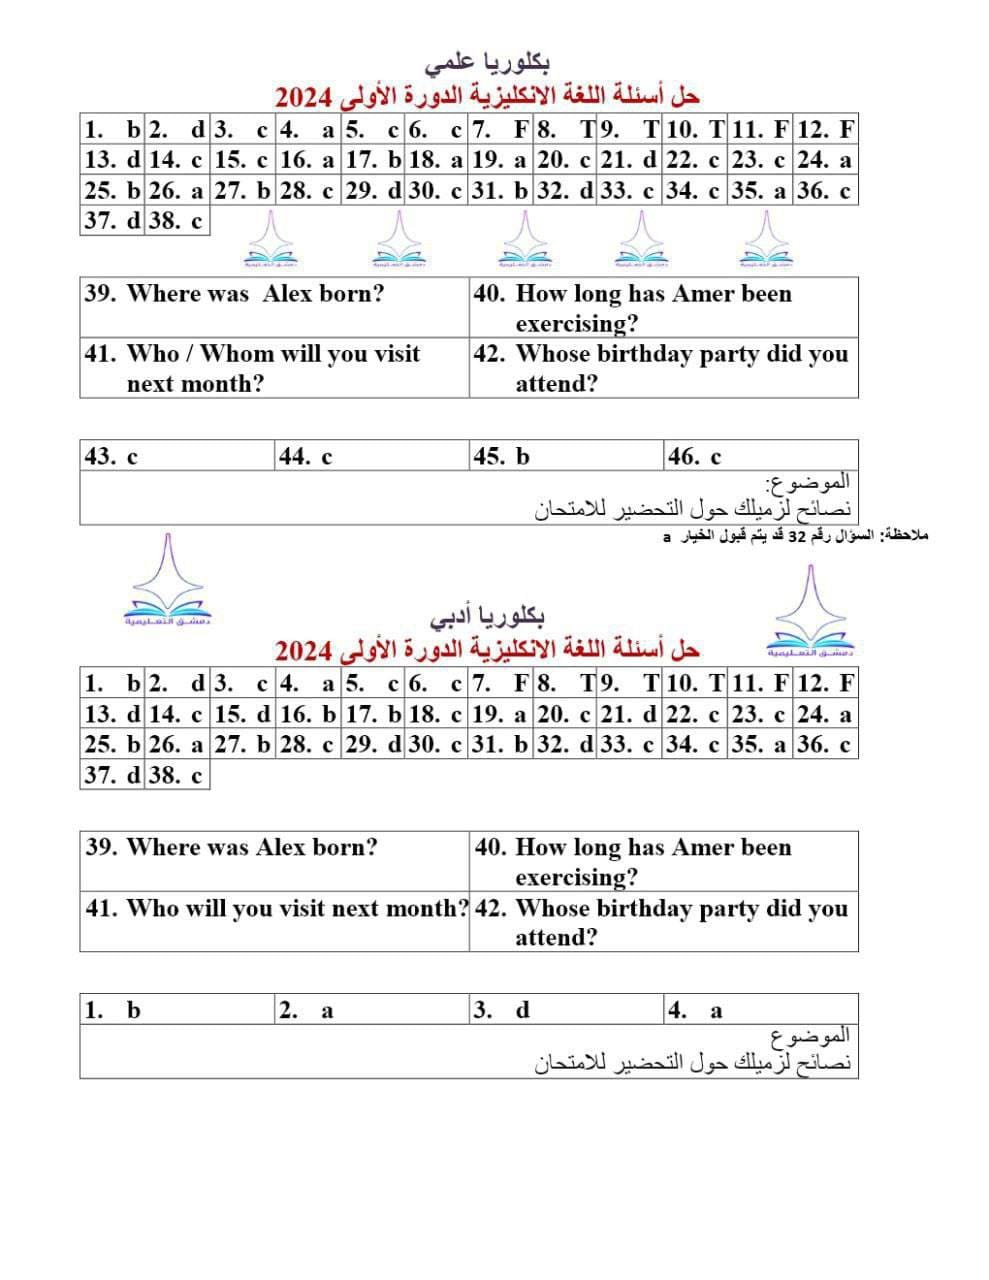 بكلوريا علمي
حل أسئلة اللغة الانكليزية الدورة الأولى 2024
1. b 2. d 3. c 4. a 5. c 6. c 7. F 8. T 9. T 10. T 11. F 12. F
13. d 14. c 15. c 16. a 17. b 18. a 19. a 20. c 21. d 22. c 23. c 24. a
25. b 26. a 27. b 28. c 29. d 30. c 31. b 32. d 33. c 34. c 35. a 36. c
37. d 38. c
دمشق التعليمية دمشق التعليمية دمشق التعليمية دمشق التعليمية دمشق التعليمية
39. Where was Alex born?
40. How long has Amer been
exercising?
41. Who / Whom will you visit
next month?
42. Whose birthday party did you
attend?
43. c 44. c 45. b 46. c
الموضوع:
نصائح لزميلك حول التحضير للامتحان
ملاحظة: السؤال رقم 32 قد يتم قبول الخيار a
دمشق التعليمية
بكلوريا أدبي
دمشق التعليمية
حل أسئلة اللغة الانكليزية الدورة الأولى 2024
1. b 2. d 3. c 4. a 5. c 6. c 7. F 8. T 9. T 10. T 11. F 12. F
13. d 14. c 15. d 16. b 17. b 18. c 19. a 20. c 21. d 22. c 23. c 24. a
25. b 26. a 27. b 28. c 29. d 30. c 31. b 32. d 33. c 34. c 35. a 36. c
37. d 38. c
39. Where was Alex born?
40. How long has Amer been
exercising?
41. Who will you visit next month?
42. Whose birthday party did you
attend?
1. b 2. a 3. d 4. a
الموضوع
نصائح لزميلك حول التحضير للامتحان